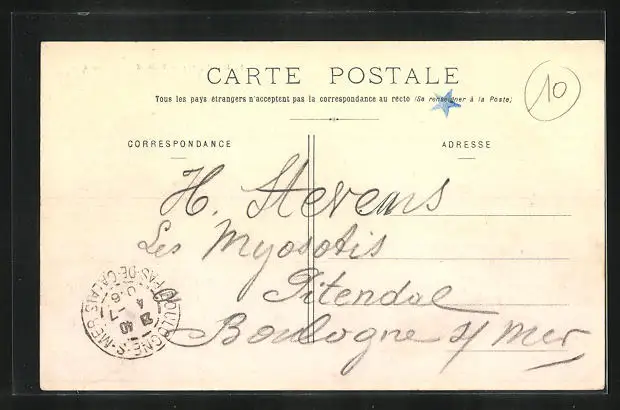 CARTE POSTALE
Tous les pays étrangers n'acceptent pas la correspondance au recto (Se renseigner à la Poste)
10
CORRESPONDANCE
ADRESSE
H. Stevens
Les Myosotis
Pitendal
Boulogne s/ Mer
BOULOGNE-S-MER PAS-DE-CALAIS